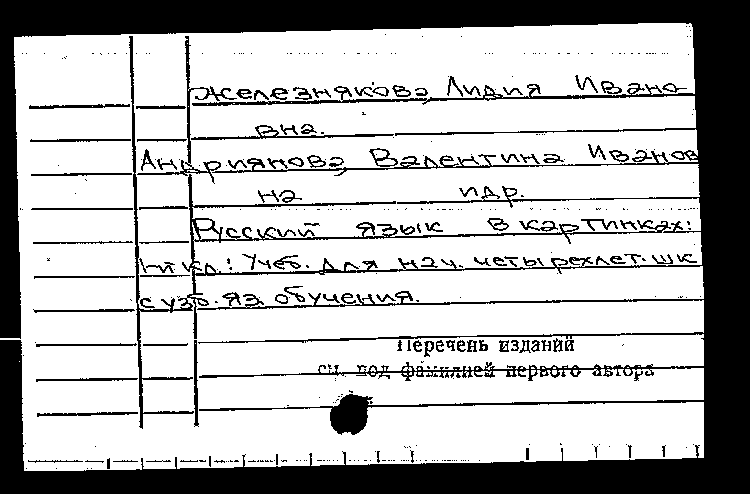 Железнякова, Лидия Ивано-
вна.
Андриянова, Валентина Иванов
на идр.
Русский язык в картинках:
кл.: Учеб. для нач. четырехлет. шк
с узб. яз. обучения.
Перечень изданий
см. под фамилией первого автора